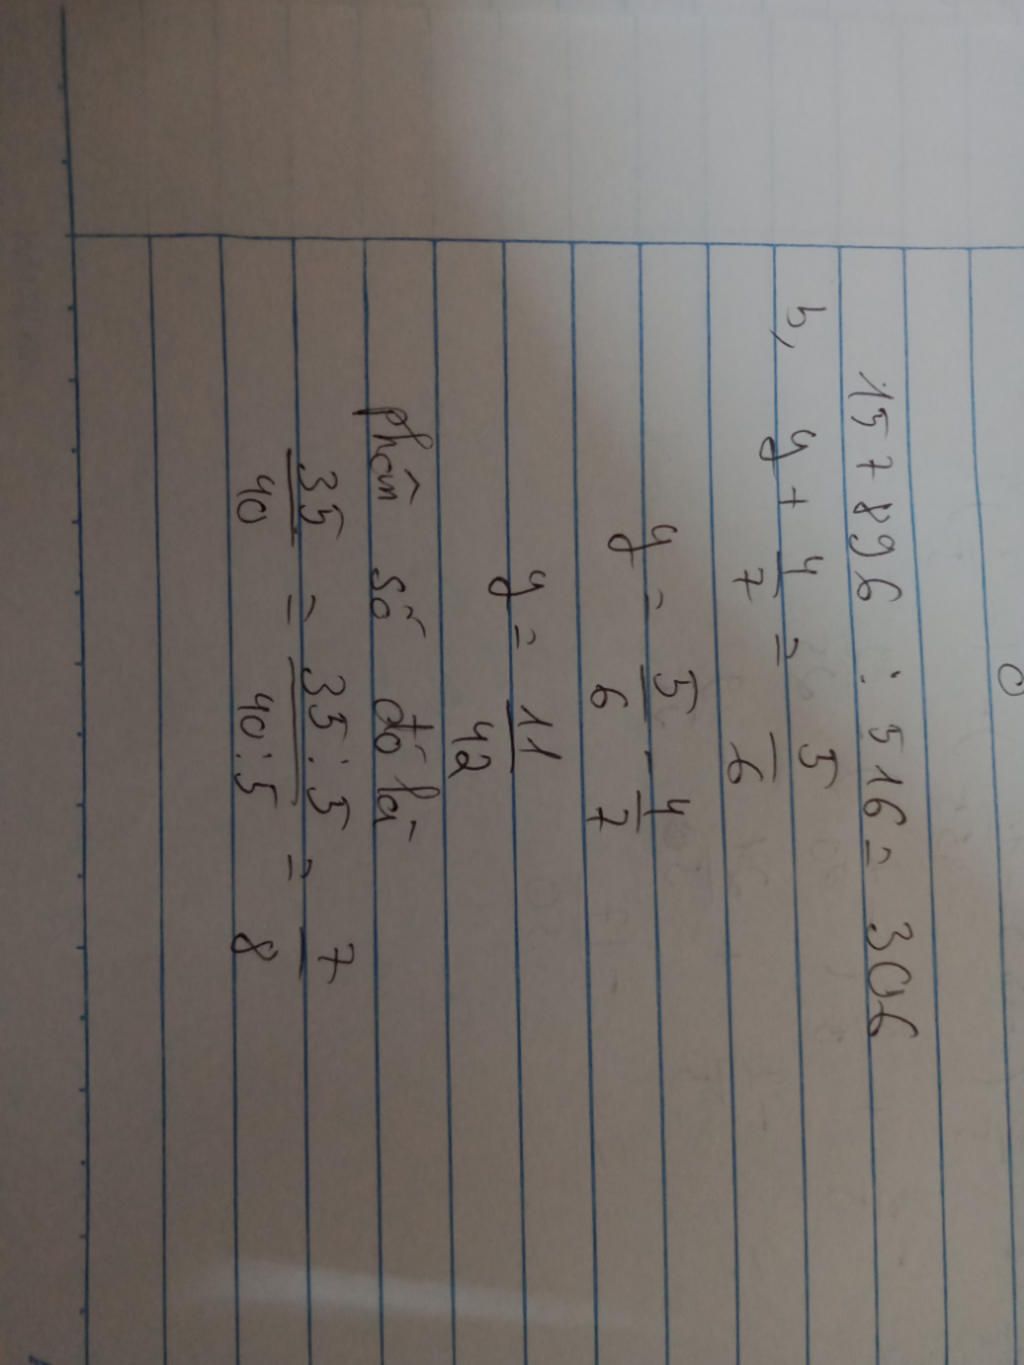 157896 : 516 = 306
b, y + 4/7 = 5/6
y = 5/6 - 4/7
y = 11/42
phân số đó là
35/40 = 35:5/40:5 = 7/8